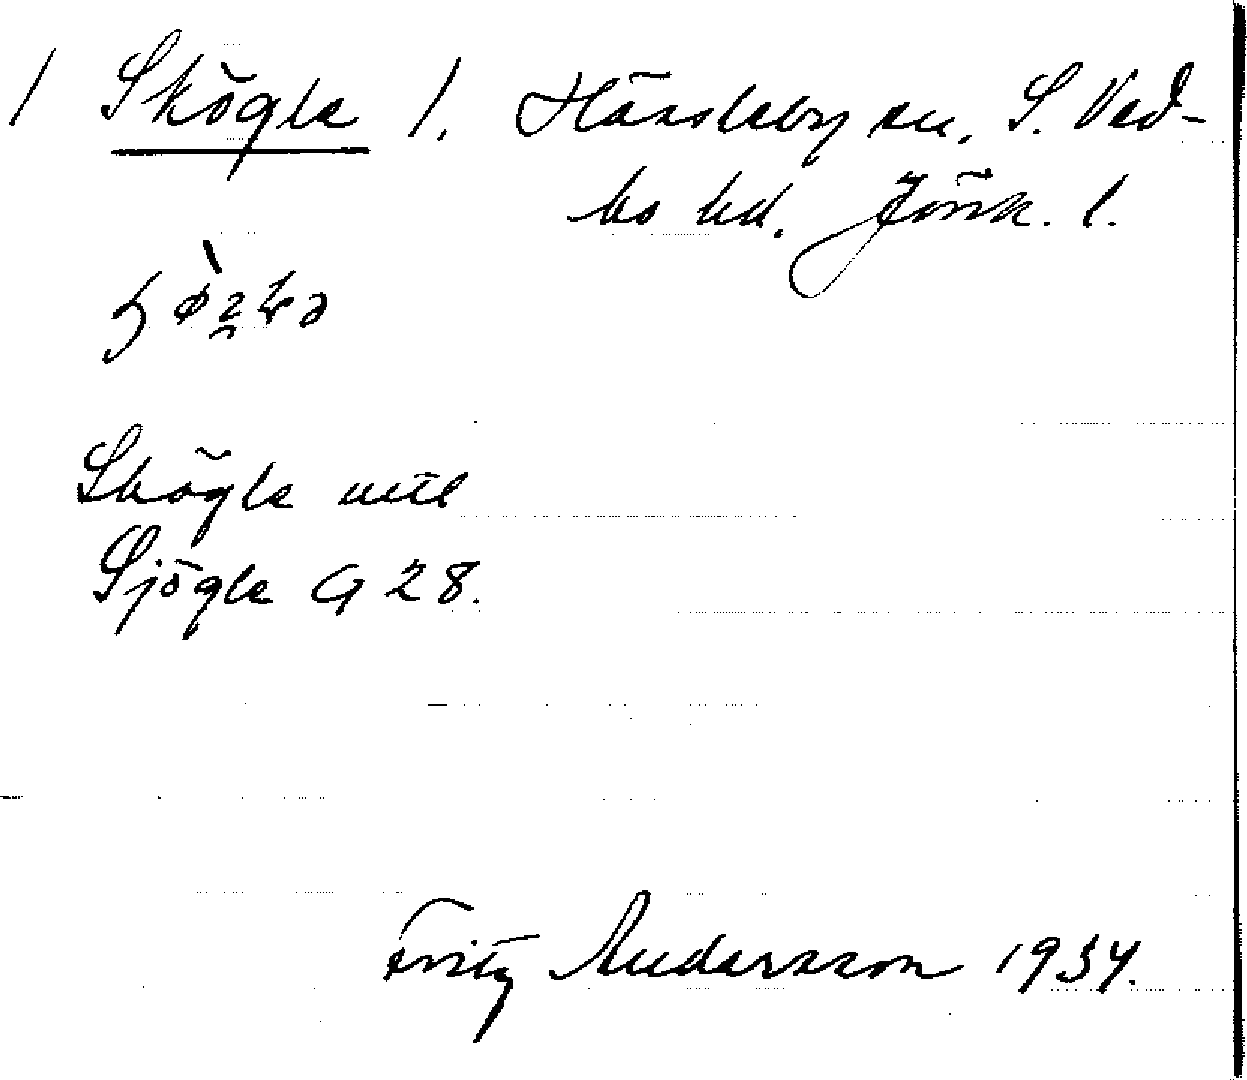 1 Skögle 1. Hässleby sn, S. Ved-
bo hd. Jönk. l.
Skögle mtl
Sjögle G 28.
Fritz Andersson 1934.